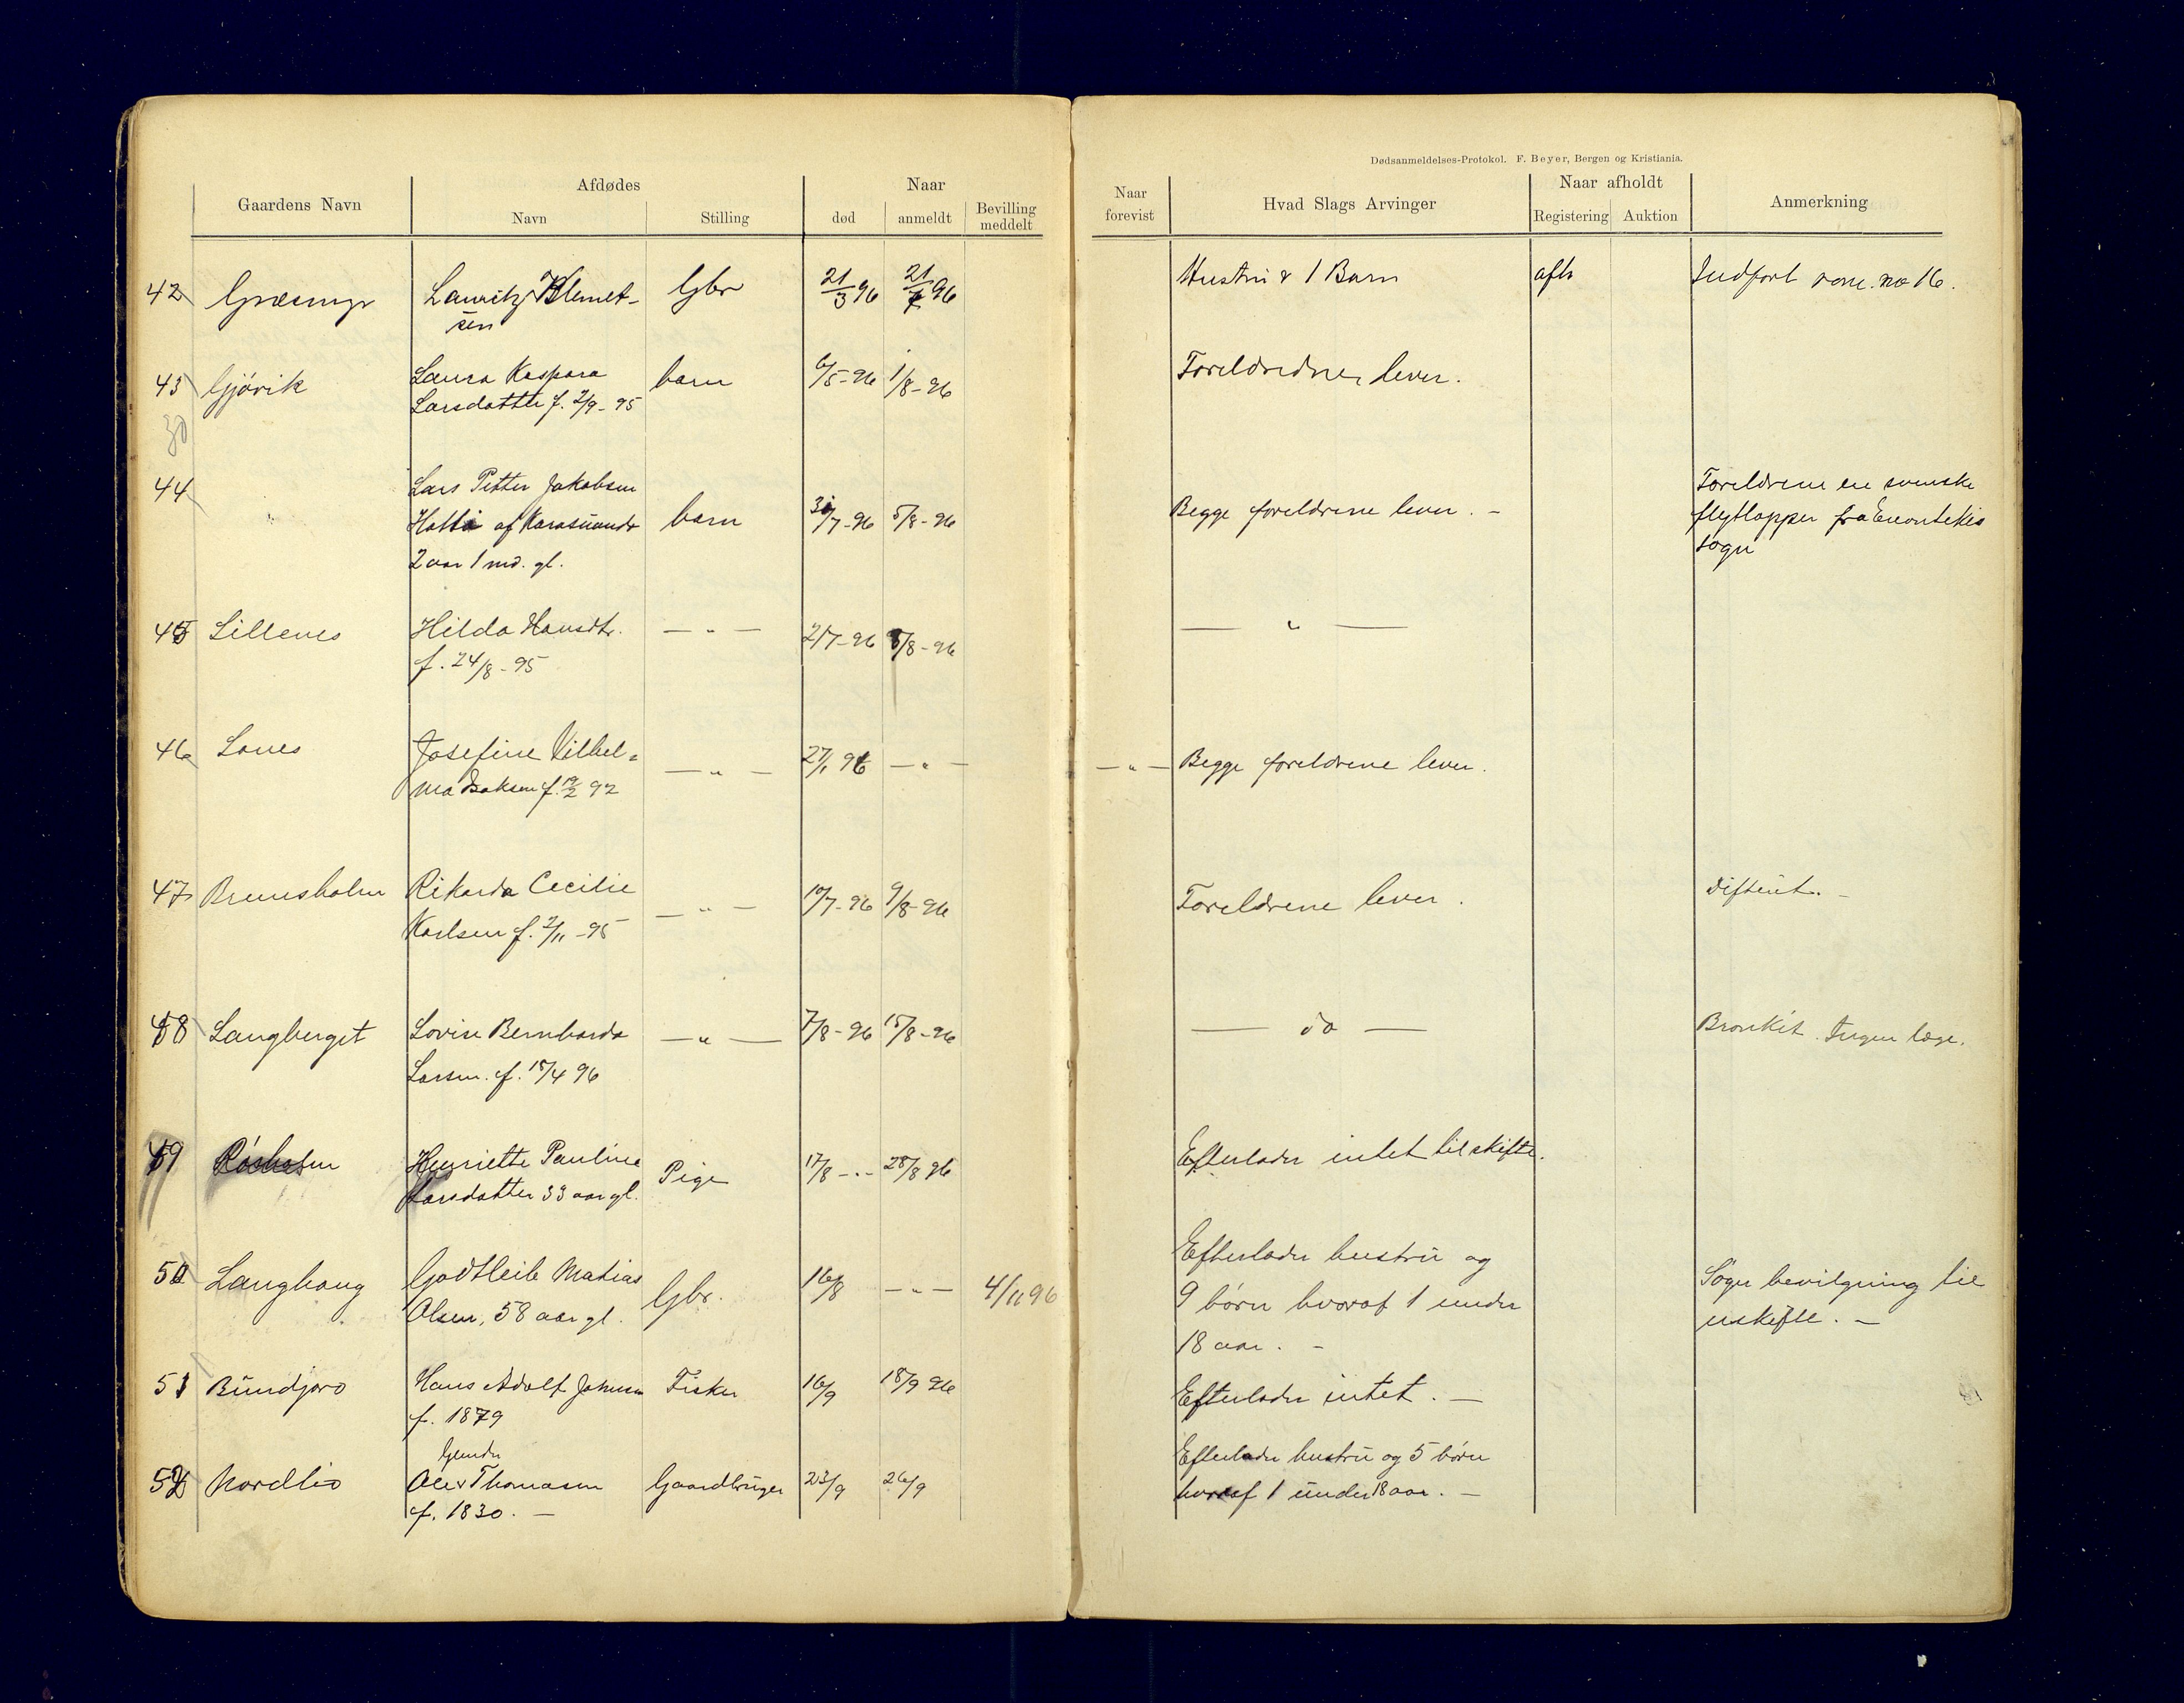 Dødsanmeldelses-Protokol. F. Beyer, Bergen og Kristiania.
Gaardens Navn
Afdødes
Navn
Stilling
Naar
død
anmeldt
Bevilling
meddelt
Naar
forevist
Hvad Slags Arvinger
Naar afholdt
Registering
Auktion
Anmerkning
42 Græsmyr Lauritz Klemet- Gbr 21/3 96 21/7 96 Hustru & 1 Barn afh Indført rom. no 16.
sen
43 Gjövik Laura Kaspara barn 6/5-96 1/8-96 Foreldredne lever.
Larsdatter f. 2/9-95
30
44 Lars Petter Jakobsen Foreldrene er svenske
Hatti af Karasuando barn 30/7-96 5/8-96 Begge foreldrene lever. - flytlapper fra Enontekis
2 aar 1 md. gl. sogn
45 Sillenes Hilda Hansdtr. — " — 21/7-96 5/8-96 — " —
f. 24/8-95
46 Lanes Josefine Vilhel= — " — 27/1 96 — " — — " — Begge foreldrene lever.
ma Isaksen f. 19/2 92
47 Bremsholm Rikarda Cecilie — " — 10/7-96 9/8-96 Foreldrene lever. Difterit. -
Karlsen f. 2/11-95
48 Langberget Lovise Bernharda — " — 7/8-96 15/8-96 — do — Bronkit. Ingen læge.
Larsen. f. 15/4 96
49 Rösholm Henriette Pauline Pige 17/8 - " - 28/8 96 Efterlader intet til skifte.
Larsdatter 33 aar gl.
50 Langhaug Godtleib Matias Gbr. 16/8 — " — 4/11 96 Efterlader hustru og Søger bevilgning til
Olsen, 58 aar gl. 9 børn hvoraf 1 under uskifte. —
18 aar. -
51 Bundjord Hans Adolf Johnsen Fisker 16/9 18/9 96 Efterlader intet. —
f. 1879
52 Nordlio Ole Thomasen Gaardbruger 23/9 26/9 Efterlader hustru og 5 børn
f. 1830. — hvoraf 1 under 18 aar. —